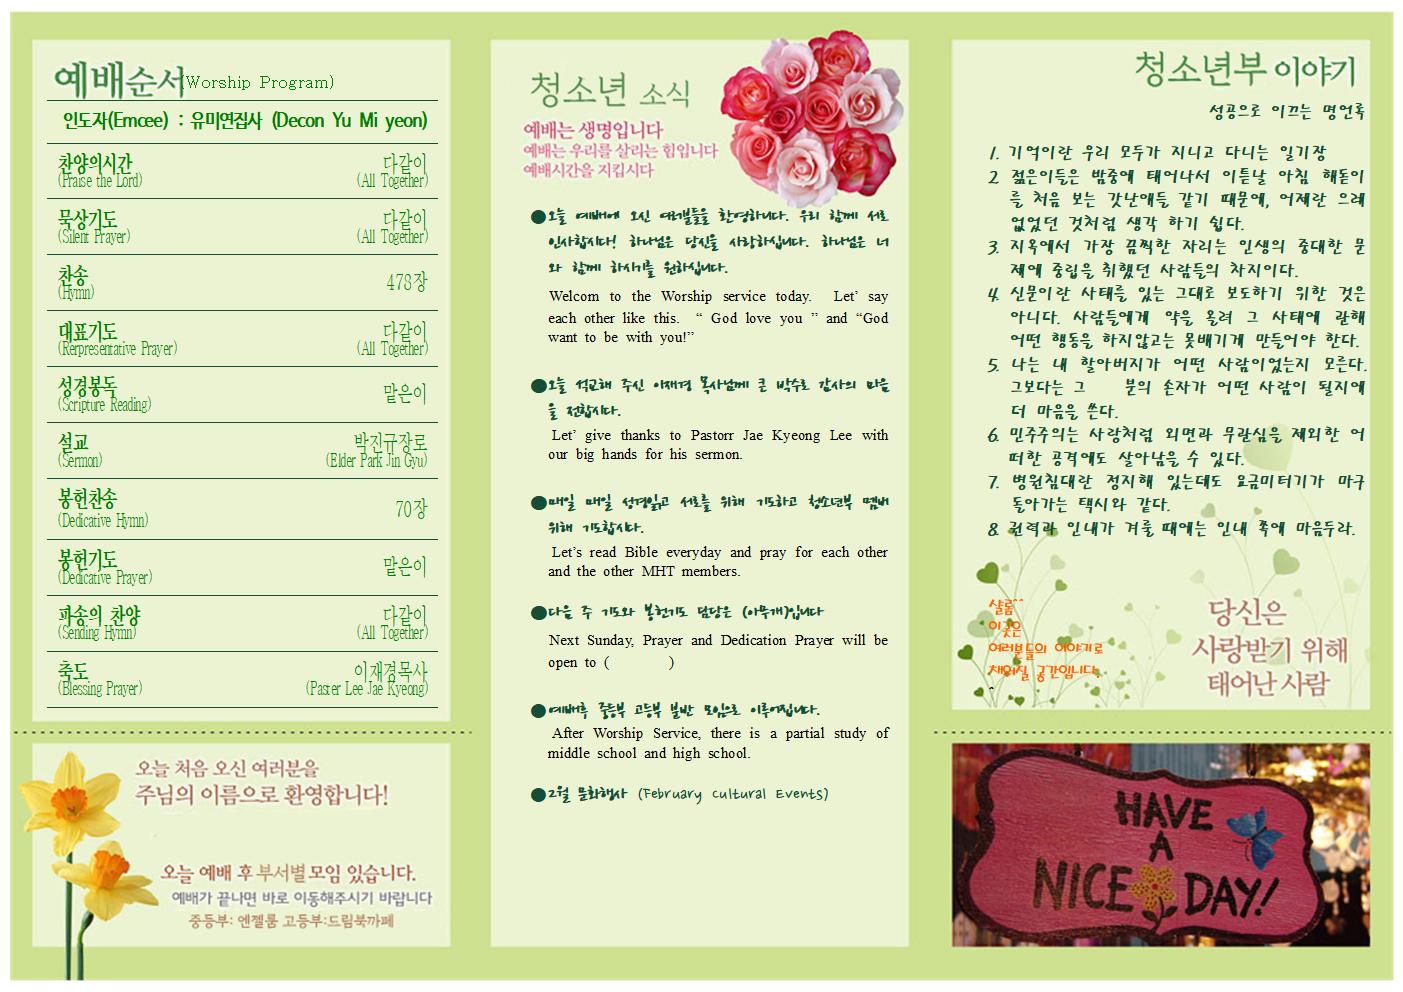 예배순서(Worship Program)
인도자(Emcee) : 유미연집사 (Decon Yu Mi yeon)
찬양의시간 다같이
(Praise the Lord) (All Together)
묵상기도 다같이
(Silent Prayer) (All Together)
찬송 478장
(Hymn)
대표기도 다같이
(Rerpresentative Prayer) (All Together)
성경봉독 맡은이
(Scripture Reading)
설교 박진규장로
(Sermon) (Elder Park Jin Gyu)
봉헌찬송 70장
(Dedicative Hymn)
봉헌기도 맡은이
(Dedicative Prayer)
파송의 찬양 다같이
(Sending Hymn) (All Together)
축도 이재경목사
(Blessing Prayer) (Paster Lee Jae Kyeong)
오늘 처음 오신 여러분을
주님의 이름으로 환영합니다!
오늘 예배 후 부서별 모임 있습니다.
예배가 끝나면 바로 이동해주시기 바랍니다
중등부: 엔젤룸 고등부:드림북까페
청소년 소식
예배는 생명입니다
예배는 우리를 살리는 힘입니다
예배시간을 지킵시다
●오늘 예배에 오신 여러분들을 환영하니다. 우리 함께 서로
인사합시다! 하나님은 당신을 사랑하십니다. 하나님은 너
와 함께 하시기를 원하십니다.
Welcom to the Worship service today. Let’ say
each other like this. “ God love you ” and “God
want to be with you!”
●오늘 설교해 주신 이재경 목사님께 큰 박수로 감사의 마음
을 전합시다.
Let’ give thanks to Pastorr Jae Kyeong Lee with
our big hands for his sermon.
●매일 매일 성경읽고 서로를 위해 기도하고 청소년부 멤버
위해 기도합시다.
Let’s read Bible everyday and pray for each other
and the other MHT members.
●다음 주 기도와 봉헌기도 담당은 (아무개)입니다
Next Sunday, Prayer and Dedication Prayer will be
open to ( )
●예배후 중등부 고등부 분반 모임으로 이루어집니다.
After Worship Service, there is a partial study of
middle school and high school.
●2월 문화행사 (February Cultural Events)
청소년부 이야기
성공으로 이끄는 명언록
1. 기억이란 우리 모두가 지니고 다니는 일기장
2. 젊은이들은 밤중에 태어나서 이튿날 아침 해돋이
를 처음 보는 갓난애들 같기 때문에, 어제란 으레
없었던 것처럼 생각 하기 쉽다.
3. 지옥에서 가장 끔찍한 자리는 인생의 중대한 문
제에 중립을 취했던 사람들의 차지이다.
4. 신문이란 사태를 있는 그대로 보도하기 위한 것은
아니다. 사람들에게 약을 올려 그 사태에 관해
어떤 행동을 하지않고는 못배기게 만들어야 한다.
5. 나는 내 할아버지가 어떤 사람이었는지 모른다.
그보다는 그 분의 손자가 어떤 사람이 될지에
더 마음을 쓴다.
6. 민주주의는 사랑처럼 외면과 무관심을 제외한 어
떠한 공격에도 살아남을 수 있다.
7. 병원침대란 정지해 있는데도 요금미터기가 마구
돌아가는 택시와 같다.
8. 권력과 인내가 겨룰 때에는 인내 쪽에 마음두라.
샬롬^^
이곳은
여러분들의 이야기로
채워질 공간입니다.
^
당신은
사랑받기 위해
태어난 사람
HAVE
A
NICE DAY!